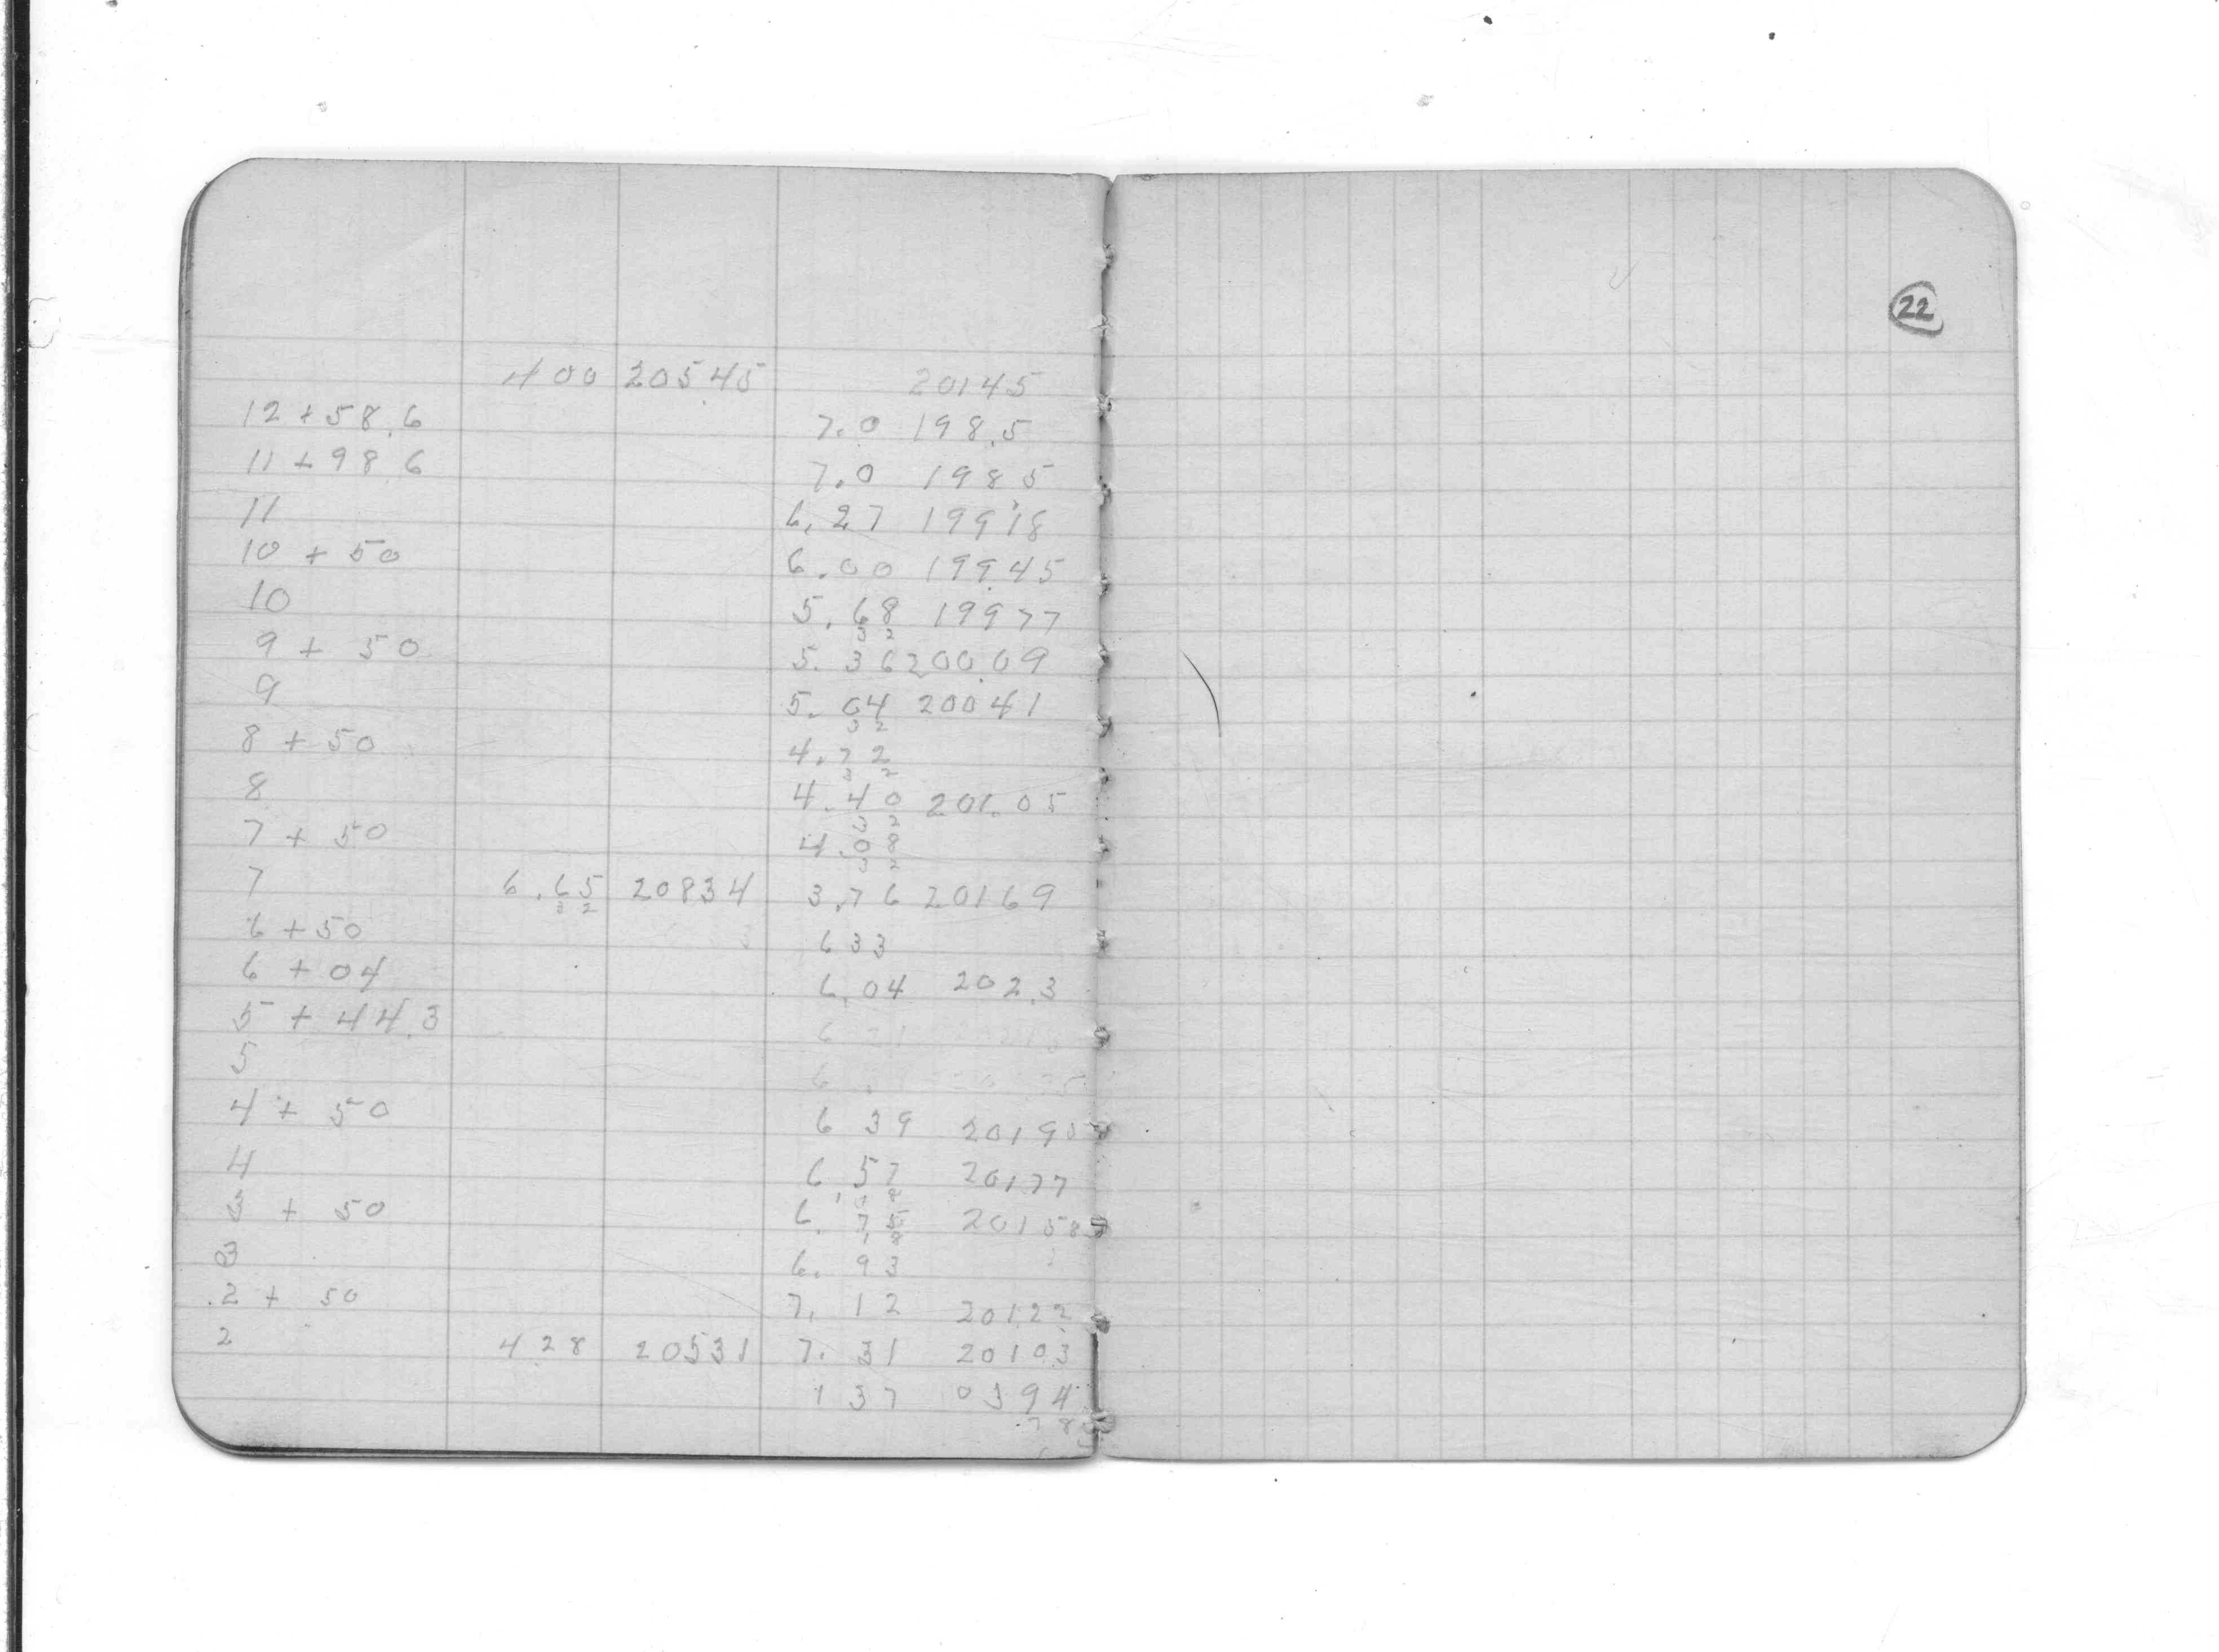 400 20545 20145
12 + 58.6 7.0 198.5
11 + 98.6 7.0 1985
11 6.27 19918
10 + 50 6.00 19945
10 5.68 19977
32
9 + 50 5.36 200.09
9 5.04 20041
32
8 + 50 4.72
32
8 4.40 201.05
32
7 + 50 4.08
32
7 6.65 20834 3.76 20169
32
6 + 50 633
6 + 04 6.04 202.3
5 + 44.3
5
4 + 50 6 39 2019
4 6.57 20177
18
3 + 50 6.75 20158
18
3 6.93
2 + 50 7.12 20122
2 4 28 20531 7.31 20103
1 37 0394
78
22